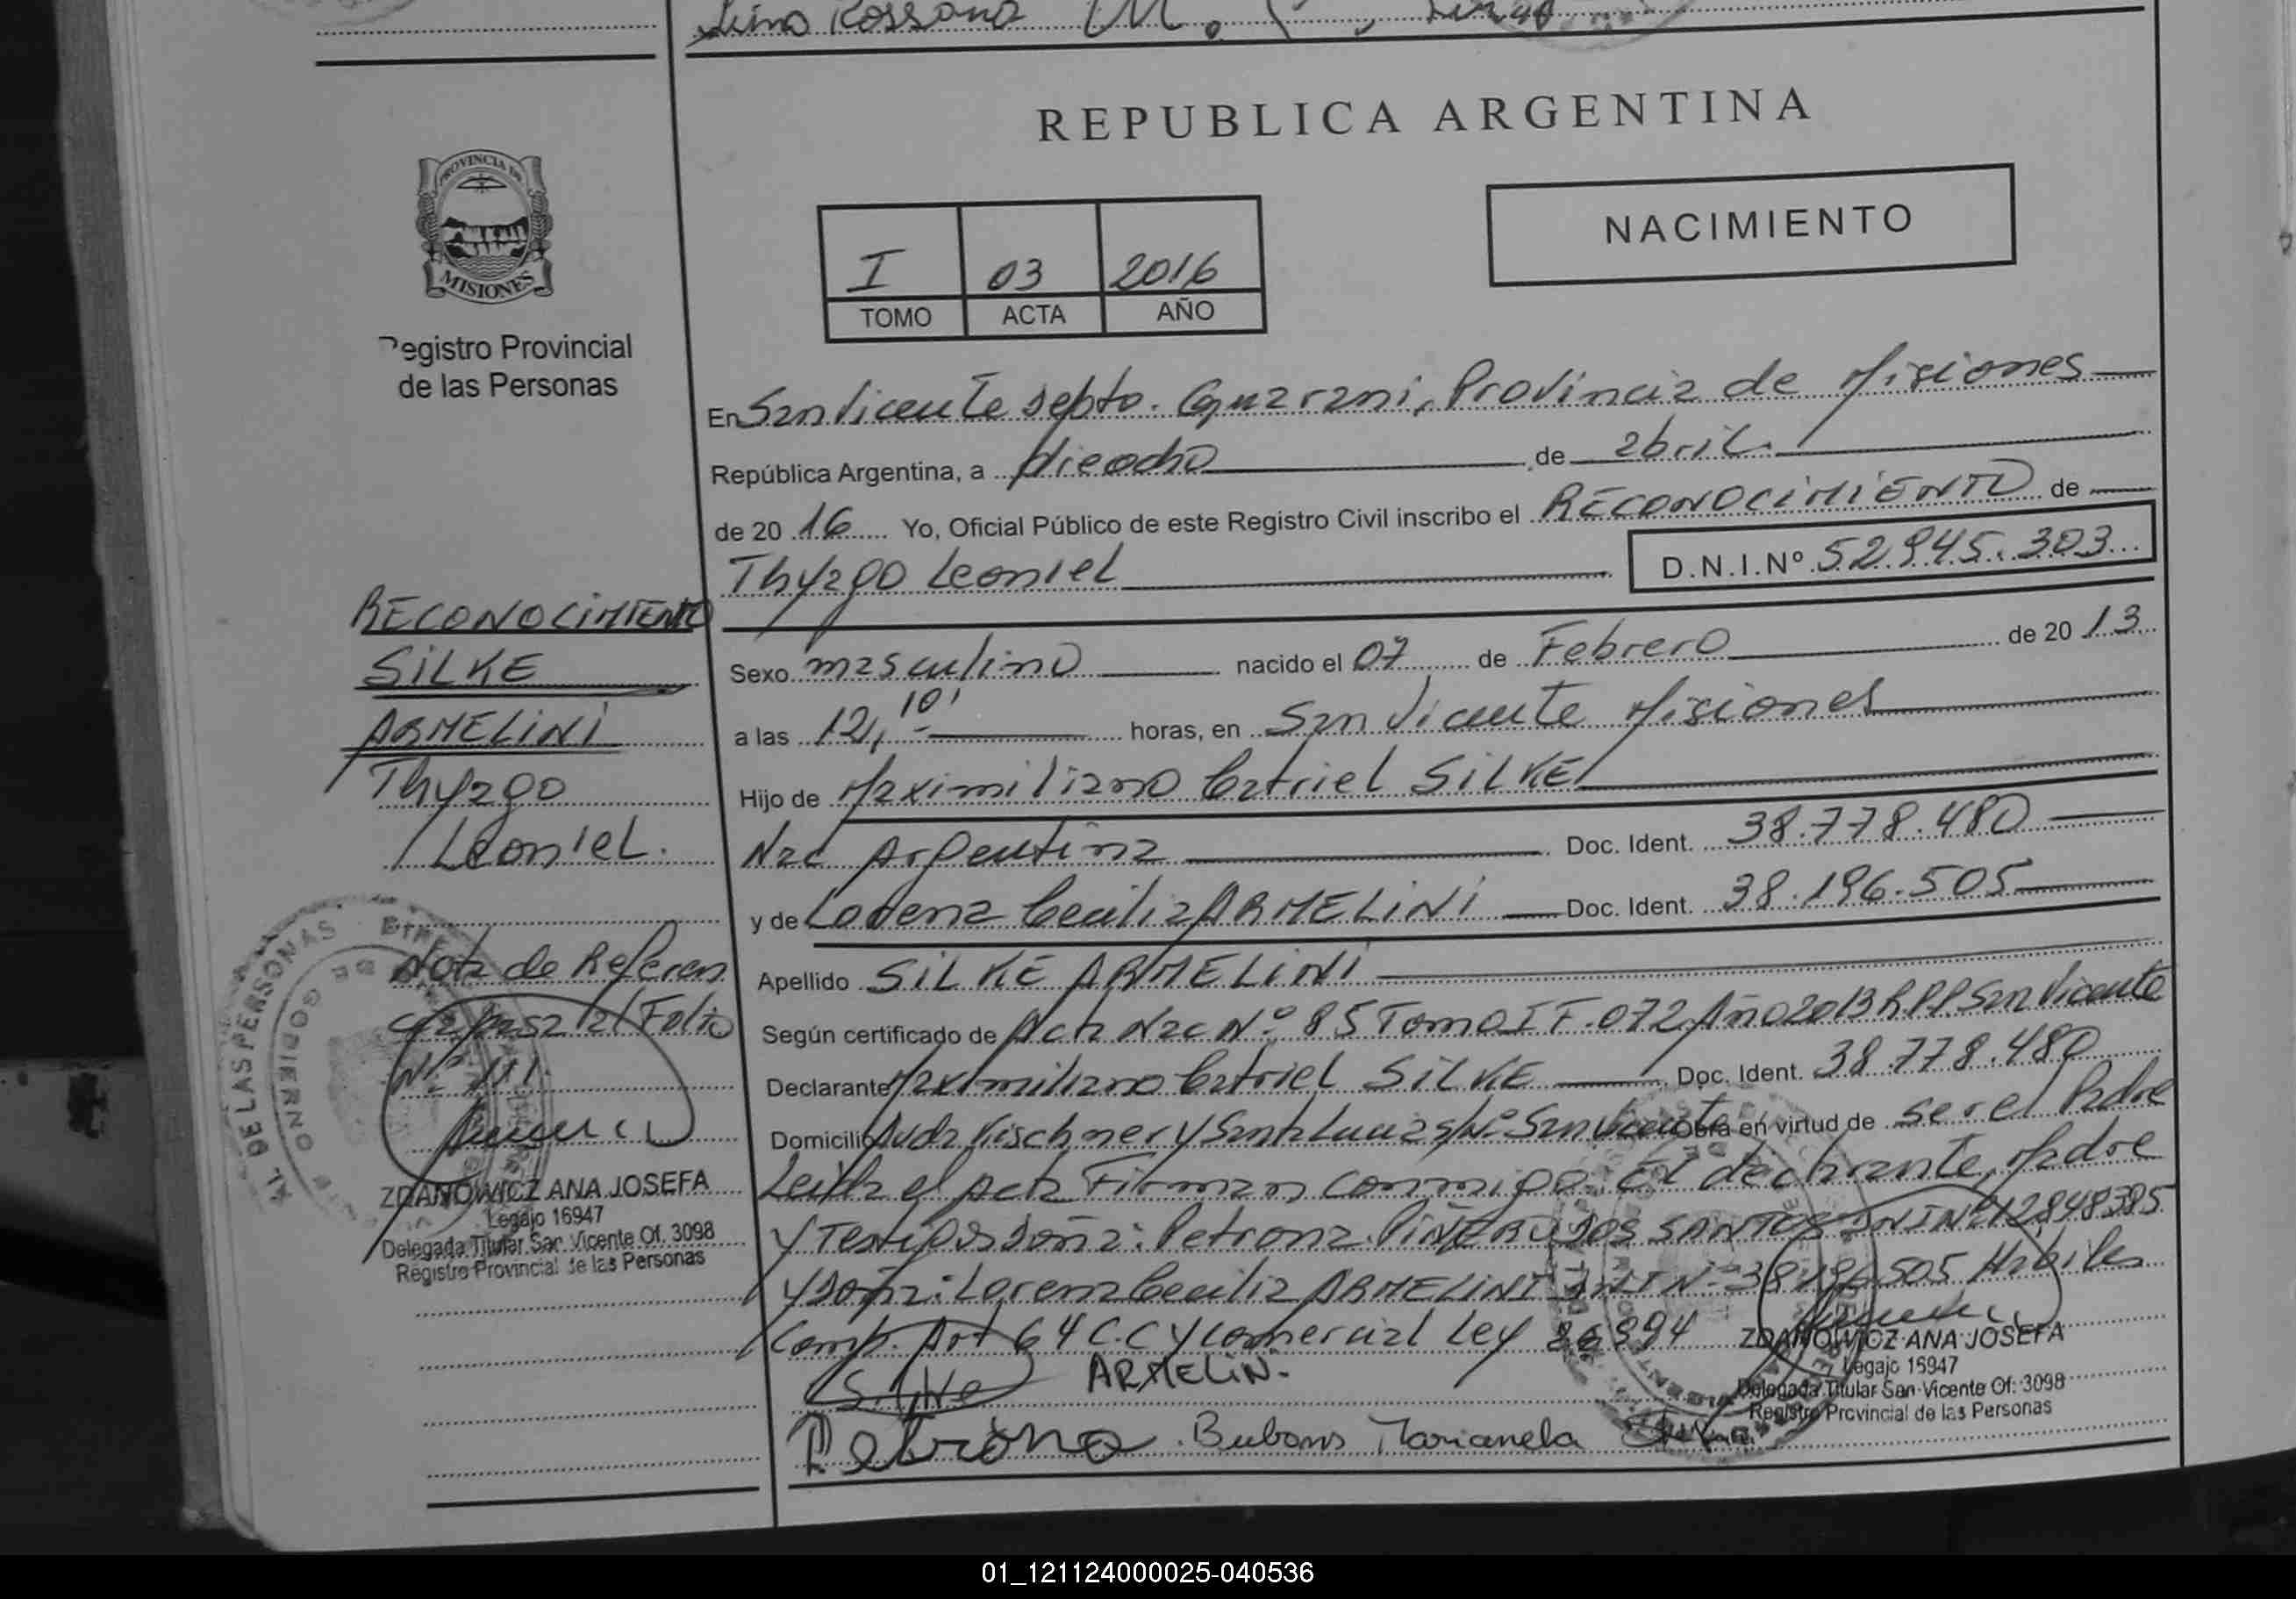 Lima Rossana M.
REPUBLICA ARGENTINA
PROVINCIA DE
MISIONES
Registro Provincial
de las Personas
I 03 2016
TOMO ACTA AÑO
NACIMIENTO
En San Vicente Depto. Guarani, Provincia de Misiones
República Argentina, a dieocho de abril
de 2016 Yo, Oficial Público de este Registro Civil inscribo el RECONOCIMIENTO de
Thyago Leoniel D.N.I.Nº 52.945.303
Sexo masculino nacido el 07 de Febrero de 2013
a las 12,10' horas, en San Vicente Misiones
Hijo de Maximiliano Catriel SILKE
Nac Argentina Doc. Ident. 38.778.480
y de Lorena Cecilia ARMELINI Doc. Ident. 38.196.505
Apellido SILKE ARMELINI
Según certificado de Acta Nac Nº 85 Tomo I F.072 Año 2013 R.P.P San Vicente
Declarante Maximiliano Catriel SILKE Doc. Ident. 38.778.480
Domicilio Avda Kischner y Santa Lucia s/Nº San Vicente Obra en virtud de ser el Padre
Leida el acta Firman conmigo El declarante, Madre
y Testigos Doña: Petrona PIÑERO DOS SANTOS DNI Nº 12848395
y Doña: Lorena Cecilia ARMELINI DNI Nº 38196505 Habiles
Comp. Art 64 C.C y Comercial Ley 26994
Silke ARMELIN.
Petrona Bubans Marianela
ZDANOWICZ ANA JOSEFA
Legajo 16947
Delegada Titular San Vicente Of. 3098
Registro Provincial de las Personas
RECONOCIMIENTO
SILKE
ARMELINI
Thyago
Leoniel.
Nota de Referen
cia pasa al Folio
Nº 111
ZDANOWICZ ANA JOSEFA
Legajo 16947
Delegada Titular San Vicente Of. 3098
Registro Provincial de las Personas
AL DE LAS PERSONAS
GOBIERNO DE
01_121124000025-040536